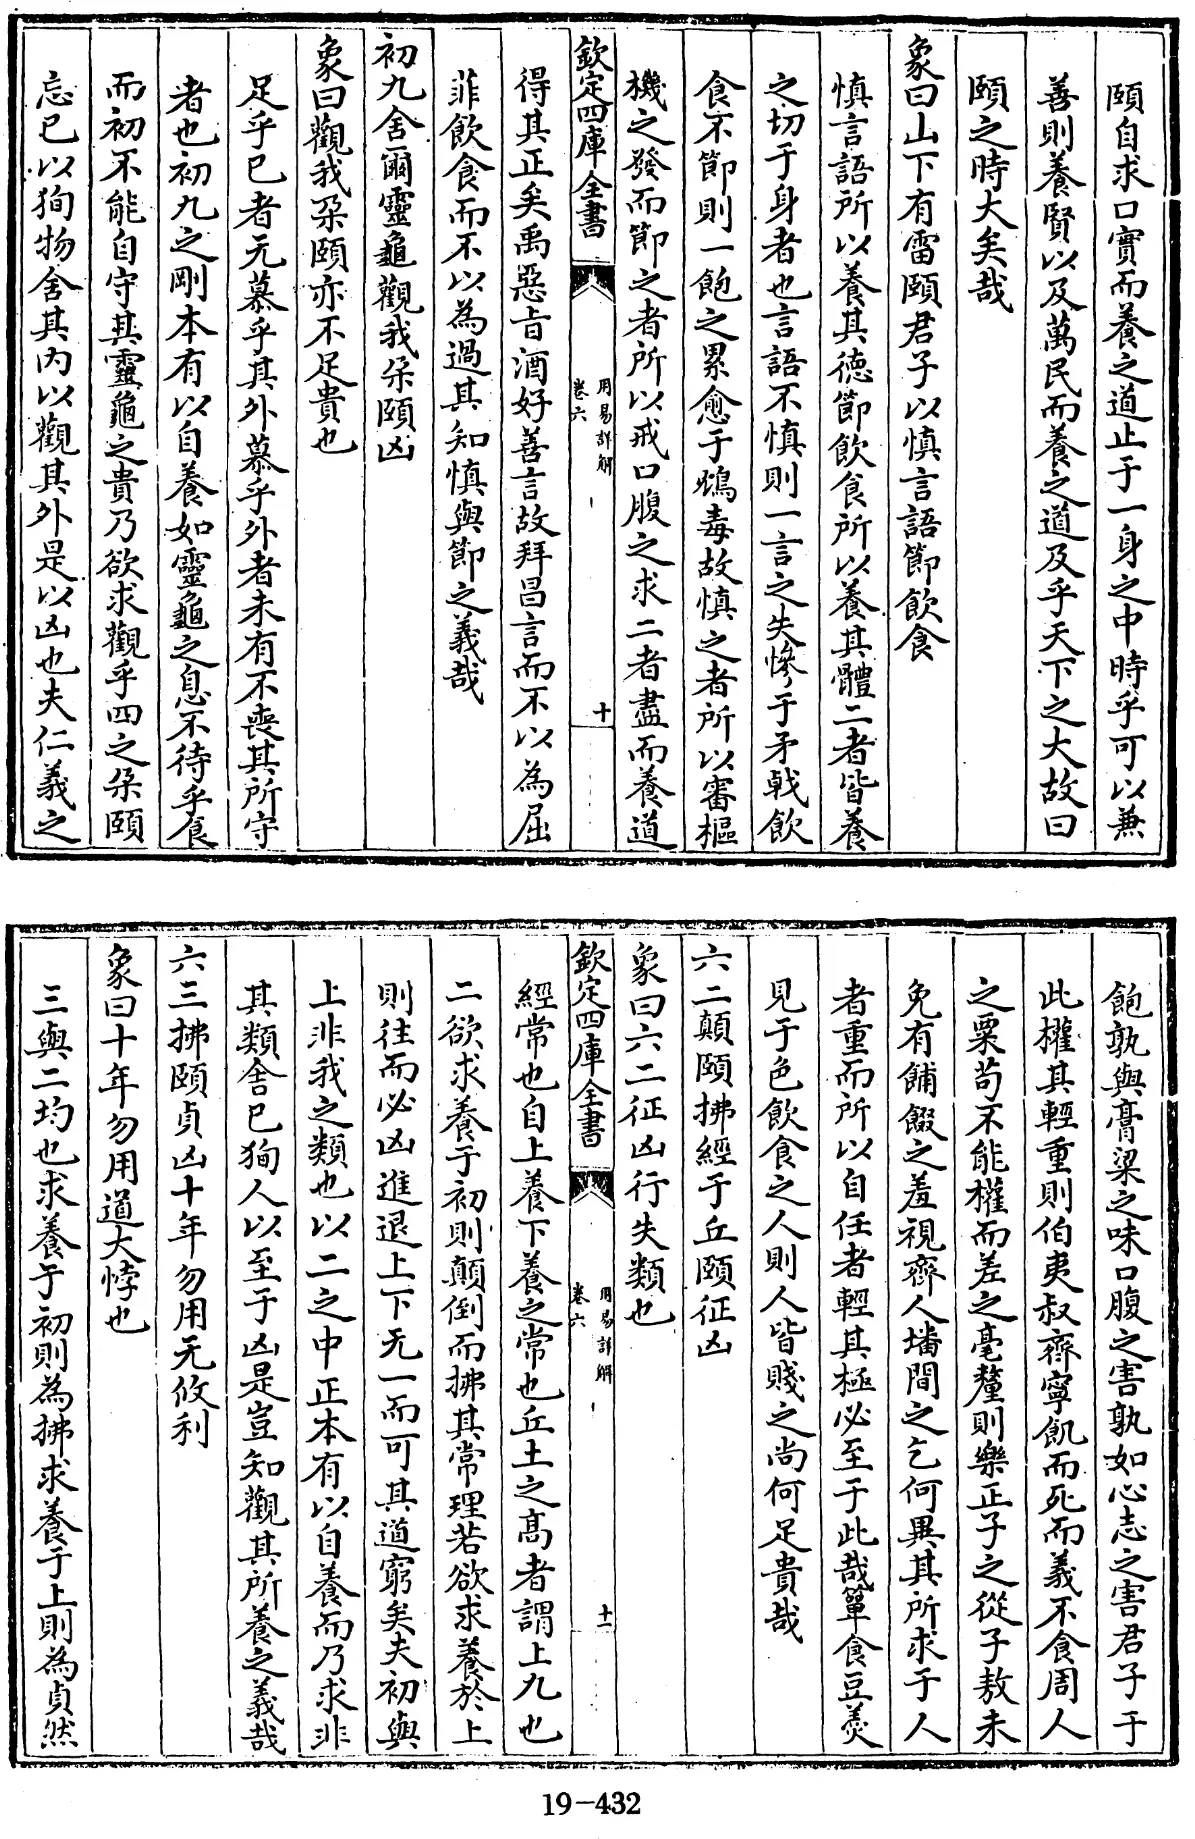 頤自求口實而養之道止于一身之中時乎可以兼
善則養賢以及萬民而養之道及乎天下之大故曰
頤之時大矣哉
象曰山下有雷頤君子以慎言語節飲食
慎言語所以養其德節飲食所以養其體二者皆養
之切于身者也言語不慎則一言之失慘于矛戟飲
食不節則一飽之累愈于鴆毒故慎之者所以審樞
機之發而節之者所以戒口腹之求二者盡而養道
欽定四庫全書
周易詳解
卷六
十
得其正矣禹惡旨酒好善言故拜昌言而不以為屈
菲飲食而不以為過其知慎與節之義哉
初九舍爾靈龜觀我朶頤凶
象曰觀我朶頤亦不足貴也
足乎已者无慕乎其外慕乎外者未有不喪其所守
者也初九之剛本有以自養如靈龜之息不待乎食
而初不能自守其靈龜之貴乃欲求觀乎四之朶頤
忘已以狥物舍其内以觀其外是以凶也夫仁義之
飽孰與膏粱之味口腹之害孰如心志之害君子于
此權其輕重則伯夷叔齊寧飢而死而義不食周人
之粟苟不能權而差之毫釐則樂正子之從子敖未
免有餔餟之羞視齊人墦間之乞何異其所求于人
者重而所以自任者輕其極必至于此哉簞食豆羮
見于色飲食之人則人皆賤之尚何足貴哉
六二顛頤拂經于丘頤征凶
象曰六二征凶行失類也
欽定四庫全書
周易詳解
卷六
十一
經常也自上養下養之常也丘土之高者謂上九也
二欲求養于初則顛倒而拂其常理若欲求養於上
則往而必凶進退上下无一而可其道窮矣夫初與
上非我之類也以二之中正本有以自養而乃求非
其類舍已狥人以至于凶是豈知觀其所養之義哉
六三拂頤貞凶十年勿用无攸利
象曰十年勿用道大悖也
三與二均也求養于初則為拂求養于上則為貞然
19-432